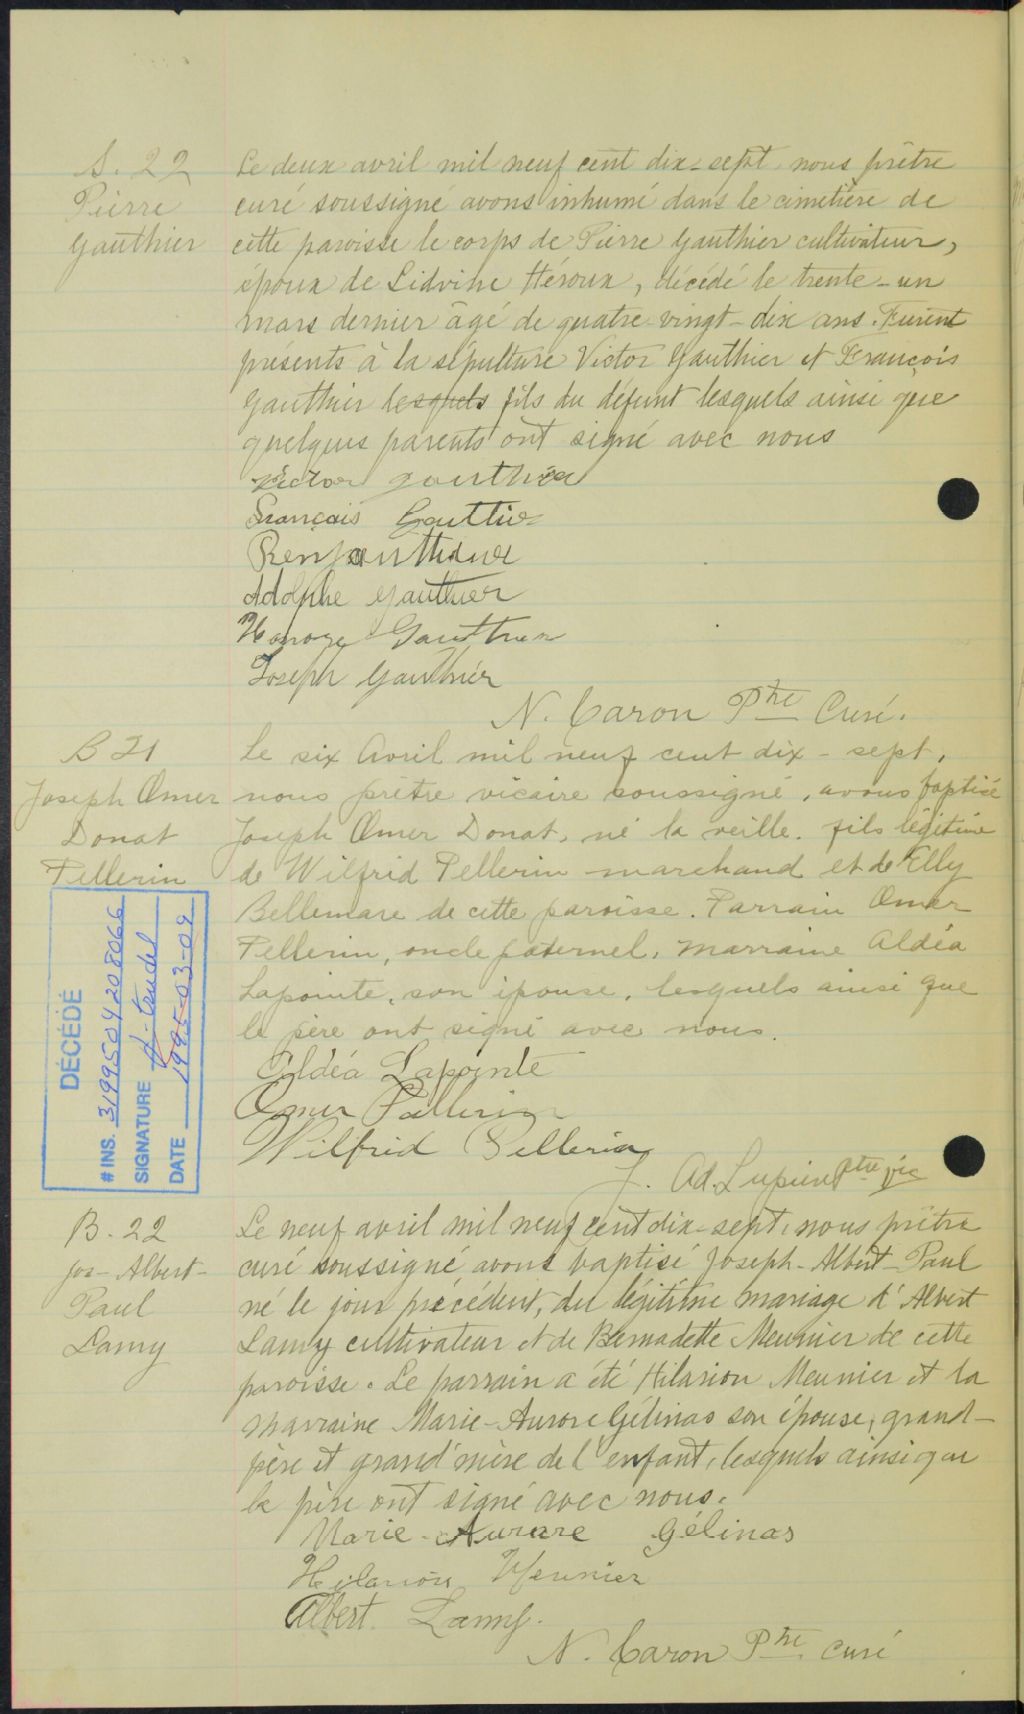 S. 22
Pierre
Gauthier
Le deux avril mil neuf cent dix-sept, nous prêtre
curé soussigné avons inhumé dans le cimetière de
cette paroisse le corps de Pierre Gauthier cultivateur,
époux de Lidvine Héroux, décédé le trente-un
mars dernier âgé de quatre-vingt-dix ans. Furent
présents à la sépulture Victor Gauthier et François
Gauthier lesquels fils du défunt lesquels ainsi que
quelques parents ont signé avec nous
Victor Gauthier
François Gauthier
Adolphe Gauthier
Gauthier
Joseph Gauthier
N. Caron Ptre Curé.
B 21
Joseph Omer
Donat
Pellerin
Le six Avril mil neuf cent dix-sept,
nous prêtre vicaire soussigné, avons baptisé
Joseph Omer Donat, né la veille. fils légitime
de Wilfrid Pellerin marchand et de Elly
Bellemare de cette paroisse. Parrain Omer
Pellerin, oncle paternel, marraine Aldéa
Lapointe, son épouse, lesquels ainsi que
le père ont signé avec nous.
Aldéa Lapointe
Omer Pellerin
Wilfrid Pellerin
J. Ad. Lupien Ptre vic
DÉCÉDÉ
# INS. 3199504208066
SIGNATURE
DATE 1995-03-09
B. 22
Jos-Albert-
Paul
Lamy
Le neuf avril mil neuf cent dix-sept, nous prêtre
curé soussigné avons baptisé Joseph-Albert-Paul
né le jour précédent, du légitime mariage d'Albert
Lamy cultivateur et de Bernadette Meunier de cette
paroisse. Le parrain a été Hilarion Meunier et la
marraine Marie-Aurore Gélinas son épouse, grand-
père et grand'mère de l'enfant, lesquels ainsi que
le père ont signé avec nous.
Marie-Aurore Gélinas
Hilarion Meunier
Albert Lamy.
N. Caron Ptre curé